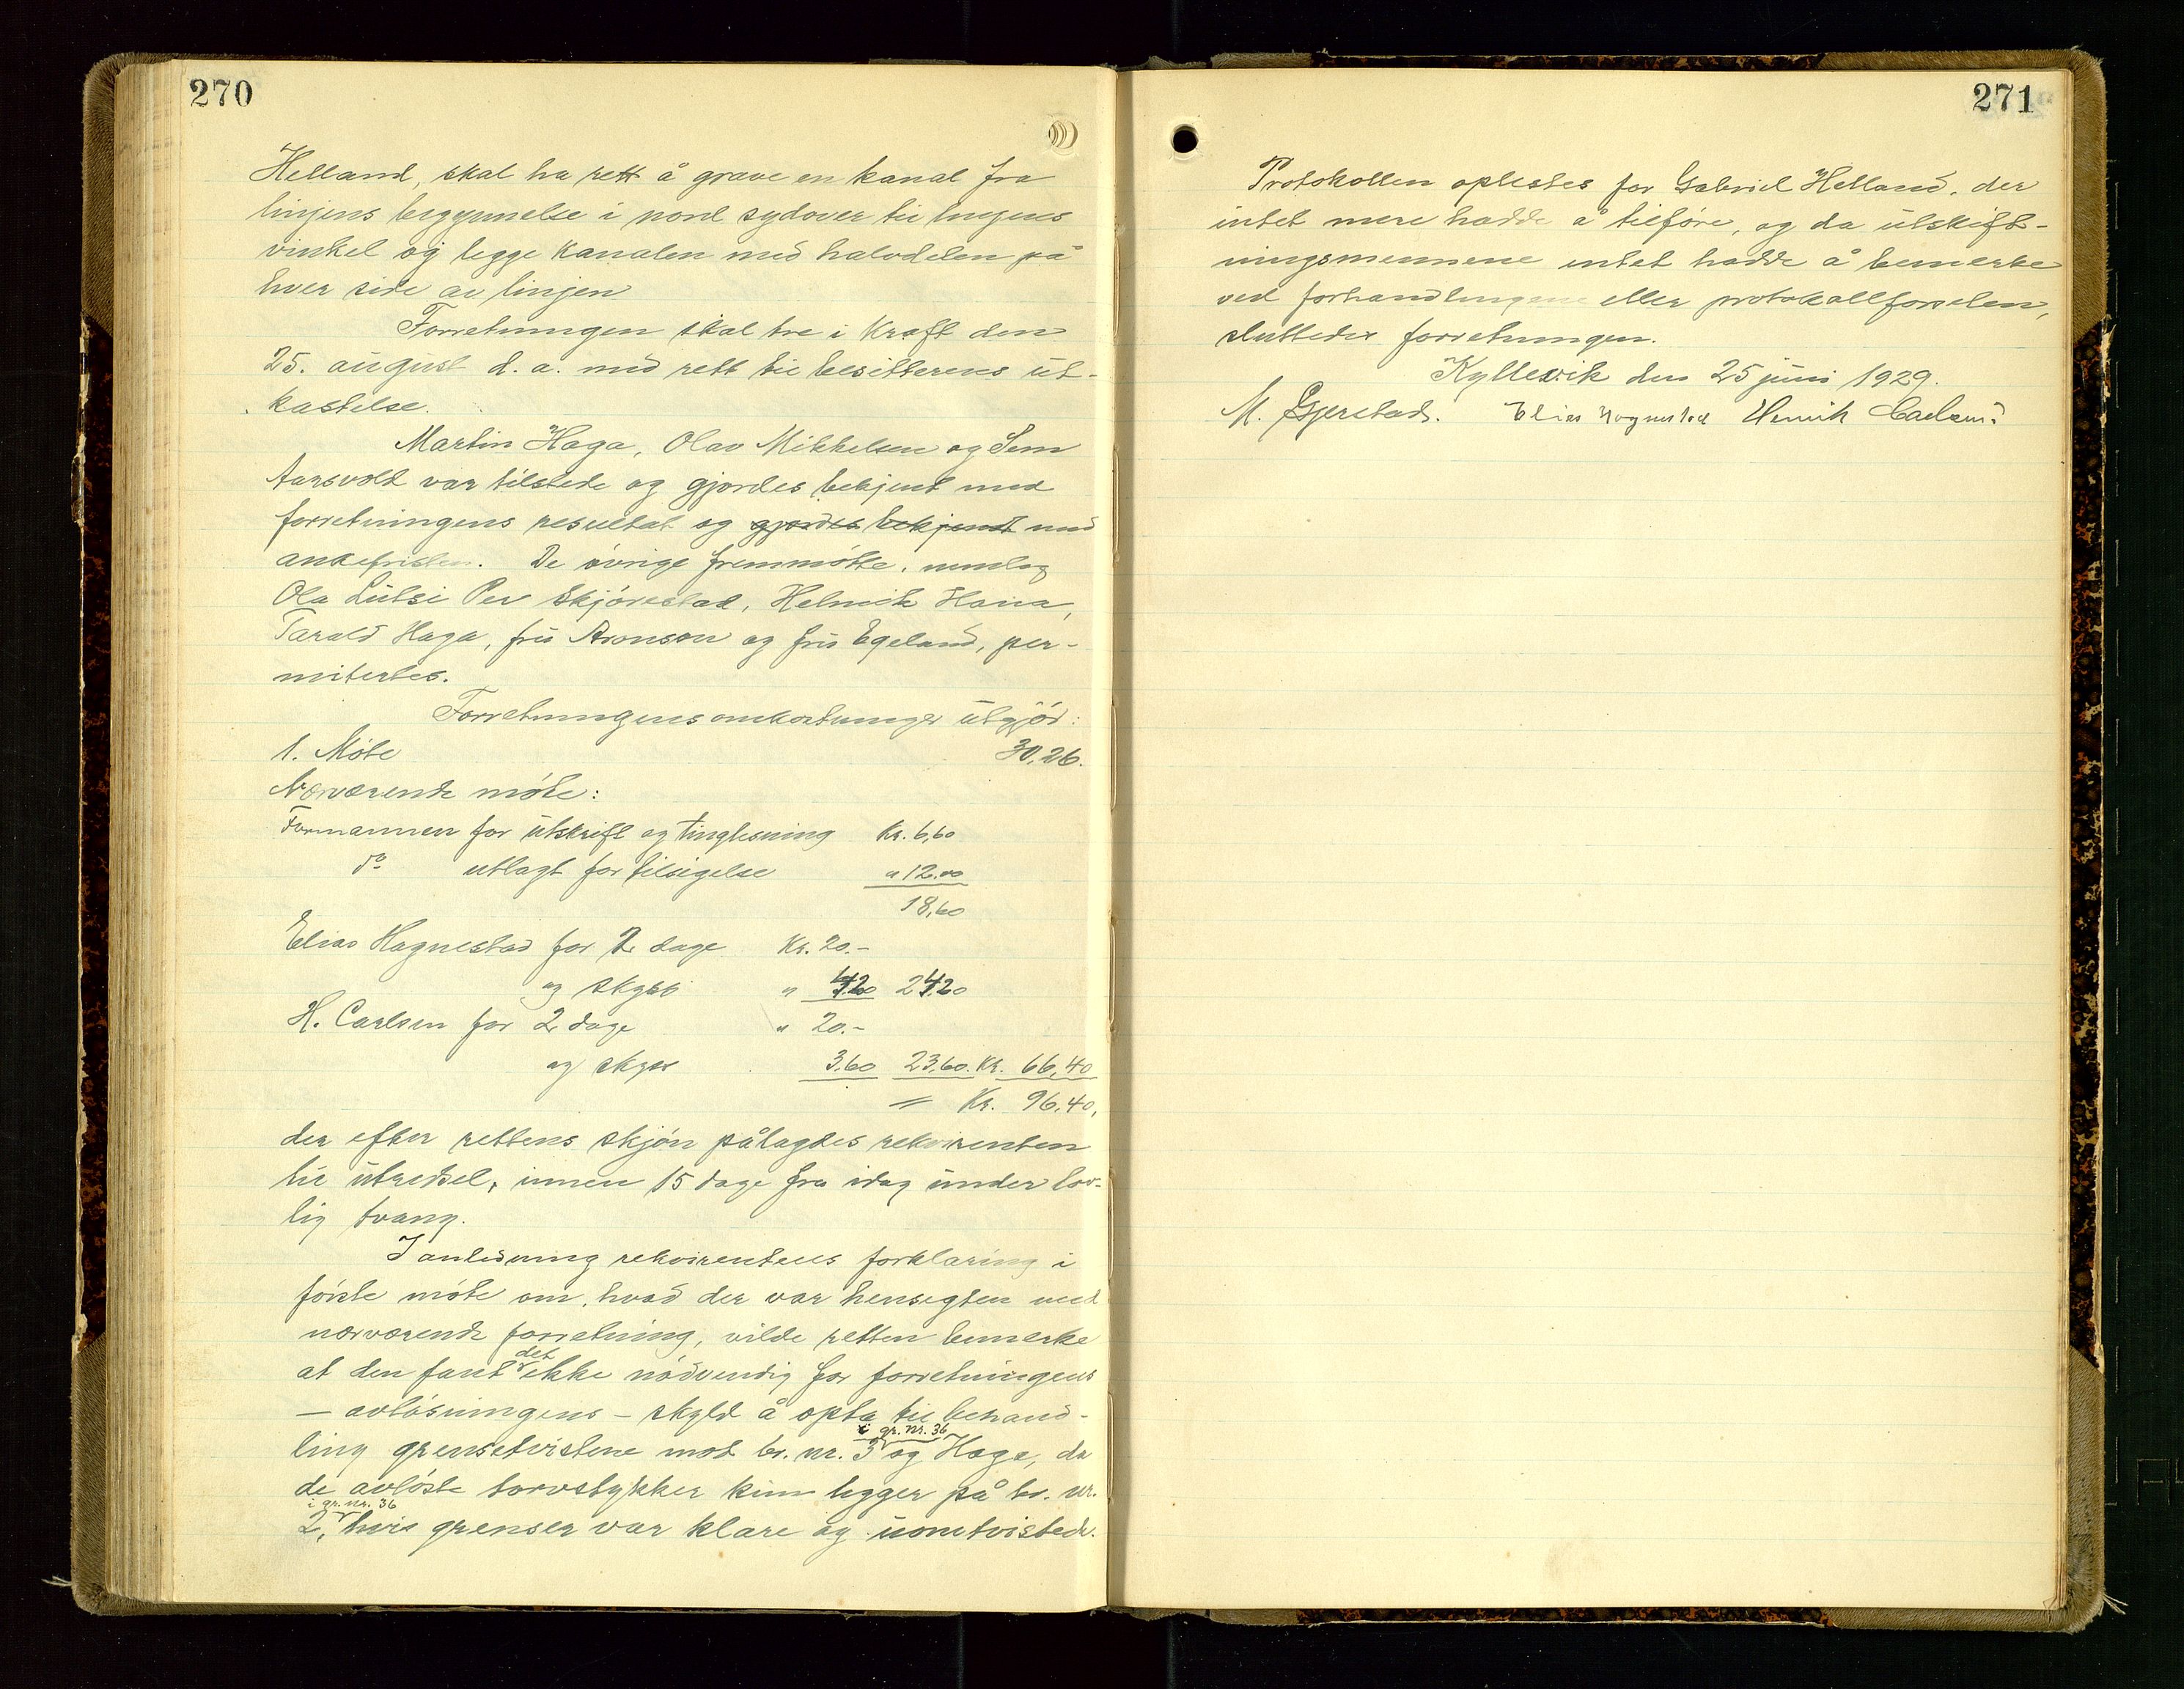 270
Helland, skal ha rett å grave en kanal fra
linjens begynnelse i nord sydover til linjens
vinkel og legge kanalen med halvdelen på
hver side av linjen
Forretningen skal tre i kraft den
25. august d. a. med rett til besitterens ut-
kastelse.
Martin Haga, Olav Mikkelsen og Sem
Aarsvold var tilstede og gjordes bekjent med
forretningens resultat og gjordes bekjendt med
ankefristen. De øvrige fremmøtte, nemlig
Ola Lutsi Per Skjørestad, Helmik Hana,
Tarald Haga, fru Aronson og fru Egeland, per-
mitertes.
Forretningens omkostninger utgjør:
1. Møte 30,26.
Nærværende møte:
Formannen for utskrift og tinglesning Kr. 6,60
do utlagt for tilsigelse " 12.00
18,60
Elias Hagnestad for 2 dage Kr. 20.-
og skyss " 4.20 24,20
H. Carlsen for 2 dage " 20.-
og skyss 3.60 23,60. Kr. 66,40
= Kr. 96,40,
der efter rettens skjøn pålagdes rekvirenten
til utredsel, innen 15 dage fra idag under lov-
lig tvang.
I anledning rekvirentens forklaring i
første møte om, hvad der var hensigten med
nærværende forretning, vilde retten bemerke
at den fant det ikke nødvendig for forretningens
— avløsningens – skyld å opta til behand-
ling grensetvistene mot br. nr. 3 i gr. nr. 36 og Haga, da
de avløste torvstykker kun ligger på br. nr.
2, i gr. nr. 36 hvis grenser var klare og uomtvistede.
271
Protokollen oplestes for Gabriel Helland, der
intet mere hadde å tilføre, og da utskift-
ningsmennene intet hadde å bemerke
ved forhandlingene eller protokollførselen,
sluttedes forretningen.
Kyllevik den 25 juni 1929.
M. Gjerstad. Elias Hognestad Henrik Carlsen